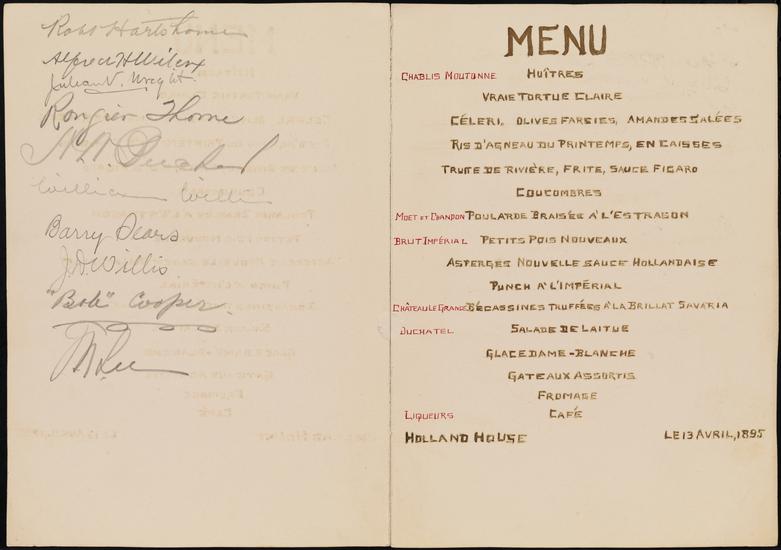 Robt Hartshorne
Alfred H Wilcox
Julian V. Wright.
Rongier Thorne
William Willi
Barry Sears
J D Willis
"Bob" Cooper.
MENU
CHABLIS MOUTONNE HUÎTRES
VRAIE TORTUE CLAIRE
CÉLERI, OLIVES FARCIES, AMANDES SALÉES
RIS D'AGNEAU DU PRINTEMPS, EN CAISSES
TRUITE DE RIVIÈRE, FRITE, SAUCE FIGARO
COUCOMBRES
MOET ET CHANDON POULARDE BRAISÉE À L'ESTRAGON
BRUT IMPÉRIAL PETITS POIS NOUVEAUX
ASPERGES NOUVELLE SAUCE HOLLANDAISE
PUNCH À L'IMPÉRIAL
CHÂTEAU LE GRANDE BÉCASSINES TRUFFÉES À LA BRILLAT SAVARIA
DUCHATEL SALADE DE LAITUE
GLACE DAME-BLANCHE
GATEAUX ASSORTIS
FROMAGE
LIQUEURS CAFÉ
HOLLAND HOUSE LE 13 AVRIL, 1895